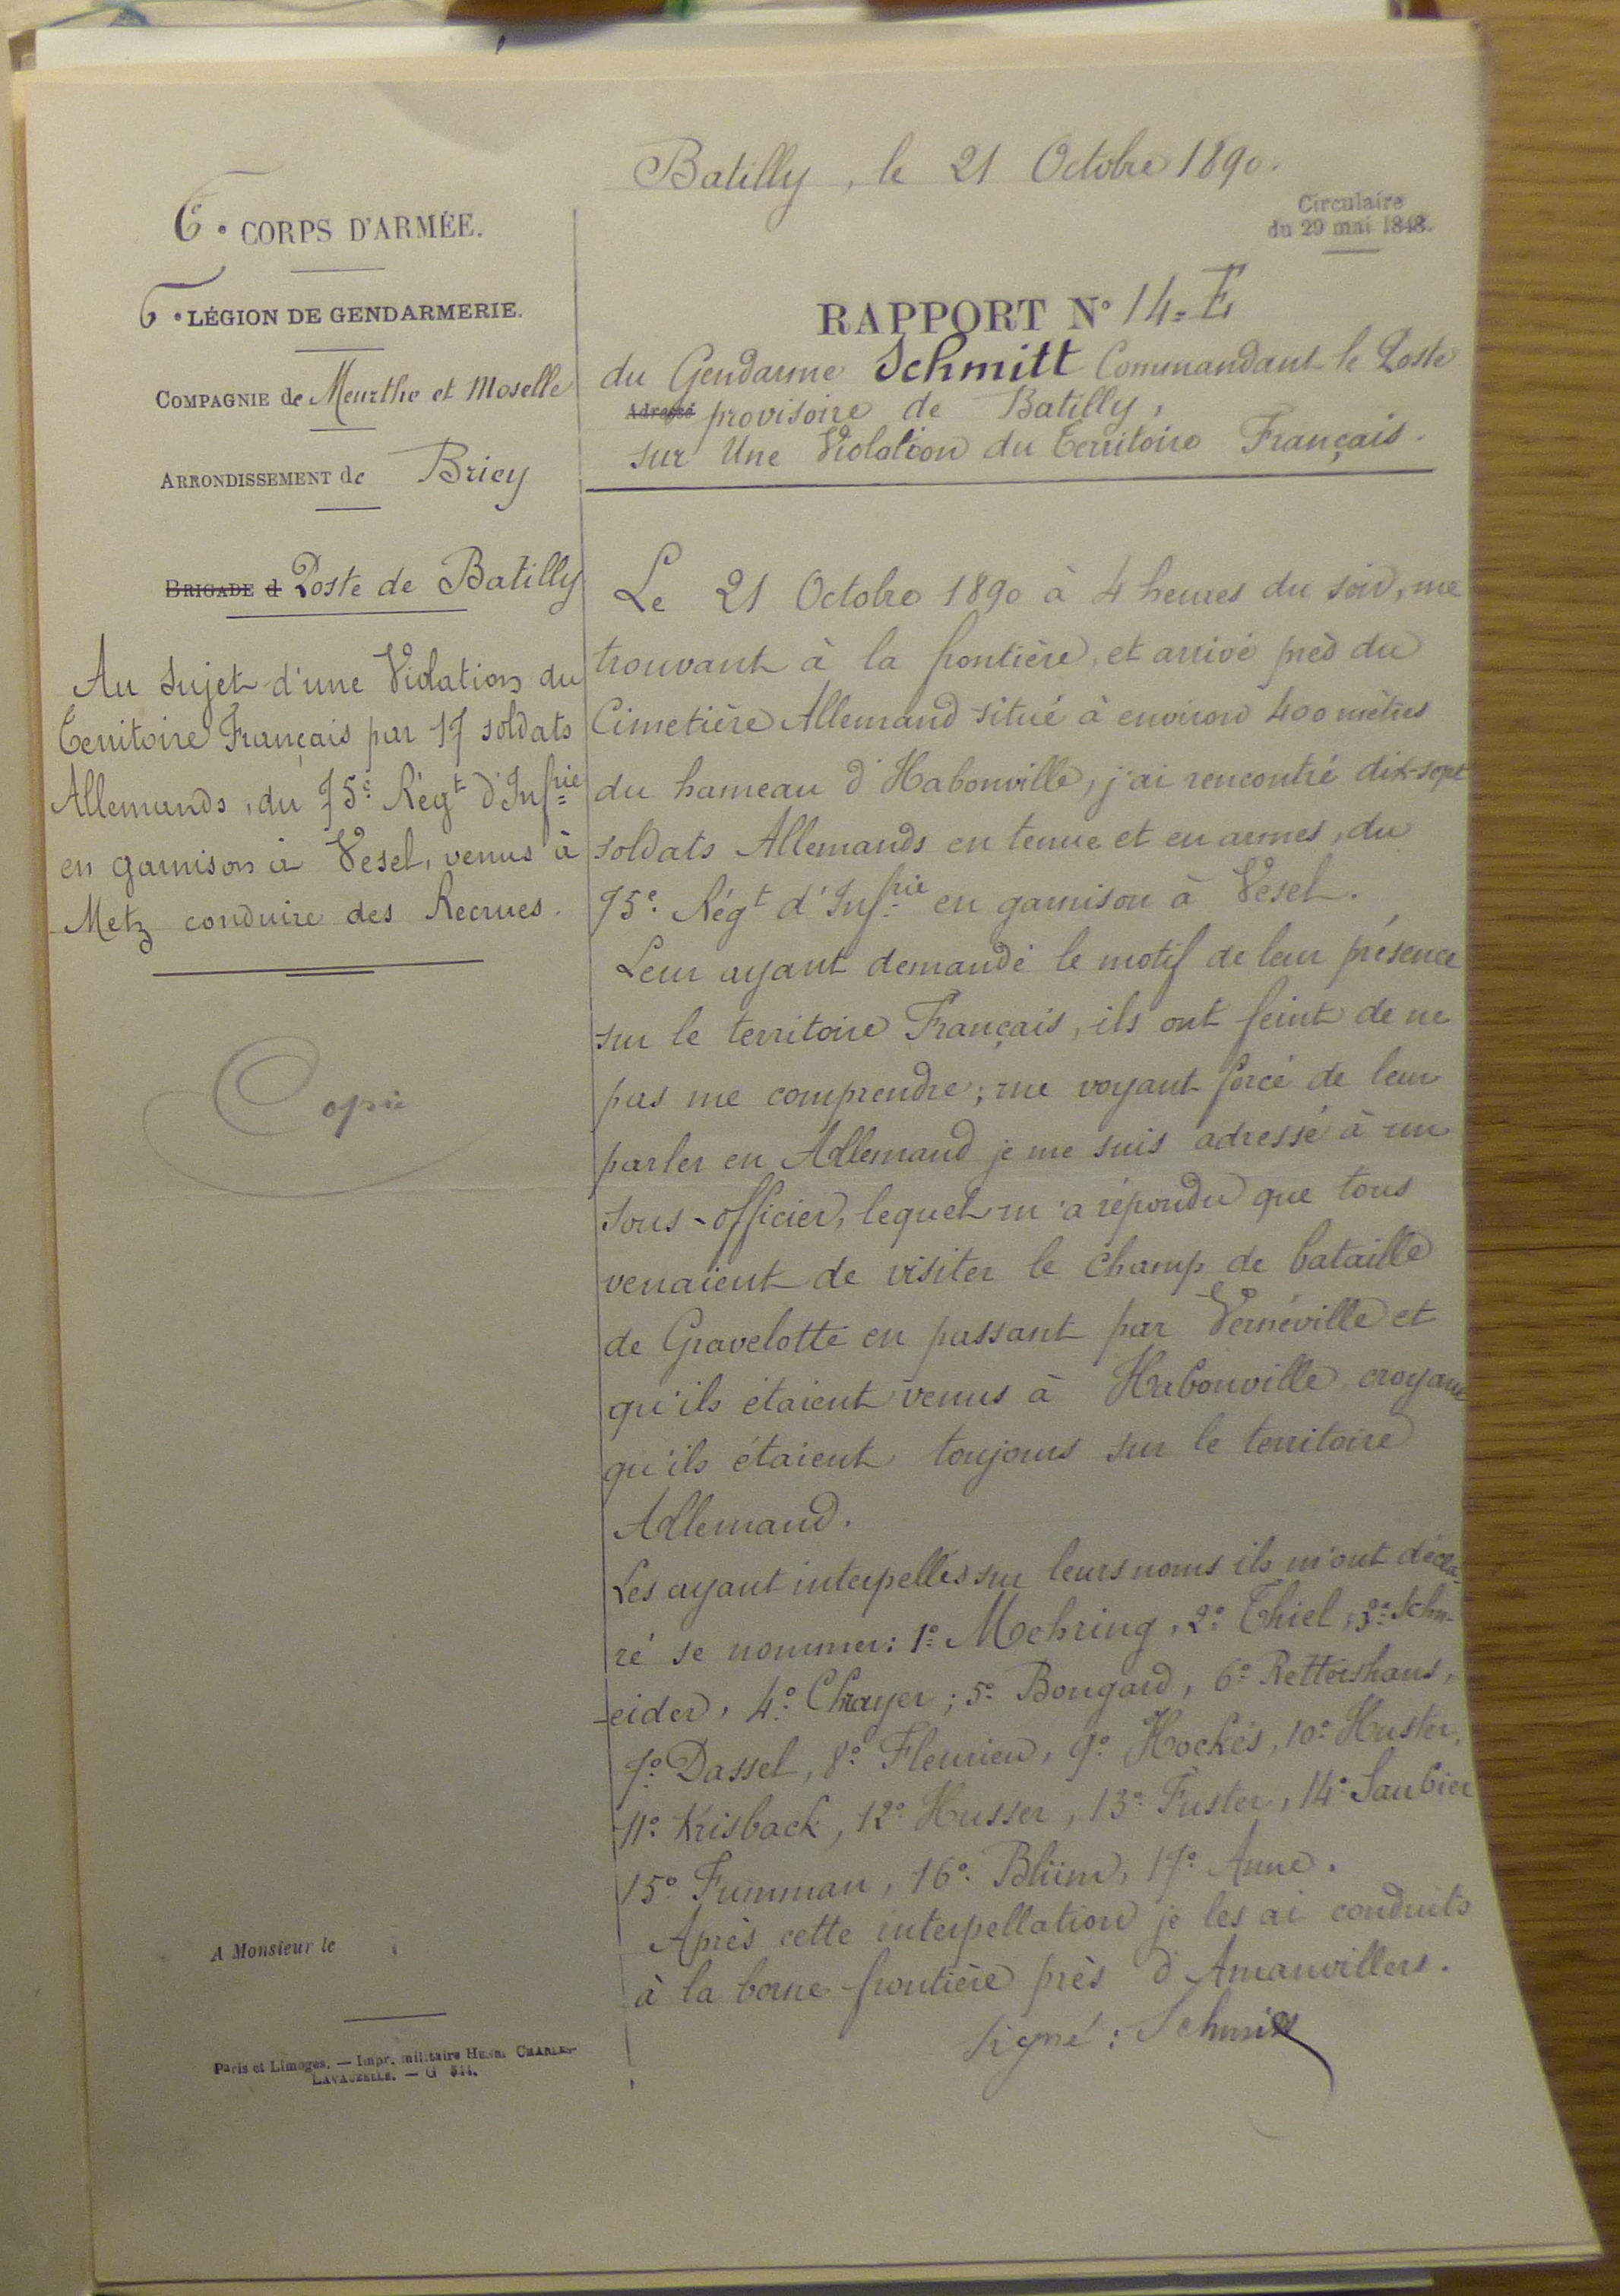 Batilly, le 21 Octobre 1890.
Circulaire
du 29 mai 1848.
6e. CORPS D'ARMÉE.
6e. LÉGION DE GENDARMERIE.
COMPAGNIE de Meurthe et Moselle
ARRONDISSEMENT de Briey
BRIGADE d Poste de Batilly
Au sujet d'une Violation du
Territoire Français par 17 soldats
Allemands, du 75e Régt d'Infrie
en garnison à Vesel, venus à
Metz conduire des Recrues.
Copie
A Monsieur le
Paris et Limoges. — Impr. militaire HENRI CHARLES-
LAVAUZELLE. — G 511.
RAPPORT N° 14=E
du Gendarme Schmitt Commandant le Poste
Adressé provisoire de Batilly,
sur Une Violation du Territoire Français.
Le 21 Octobre 1890 à 4 heures du soir, me
trouvant à la frontière, et arrivé près du
Cimetière Allemand situé à environ 400 mètres
du hameau d'Habonville, j'ai rencontré dix-sept
soldats Allemands en tenue et en armes, du
75e. Régt d'Infrie en garnison à Vesel.
Leur ayant demandé le motif de leur présence
sur le territoire Français, ils ont feint de ne
pas me comprendre; me voyant forcé de leur
parler en Allemand je me suis adressé à un
sous-officier, lequel m'a répondu que tous
venaient de visiter le champ de bataille
de Gravelotte en passant par Vernéville et
qu'ils étaient venus à Habonville croyant
qu'ils étaient toujours sur le territoire
Allemand.
Les ayant interpellés sur leurs noms ils m'ont décla-
ré se nommer: 1° Mehring, 2° Thiel, 3° Schn-
-eider, 4° Chrayer; 5° Bongard, 6° Rettershans,
7° Dassel, 8° Fleurieu, 9° Hockés, 10° Huster,
11° Krisback, 12° Husser, 13° Fuster, 14° Saubier
15° Fumman, 16° Blüm, 17° Anne.
Après cette interpellation je les ai conduits
à la borne frontière près d'Amanvillers.
Signé: Schmitt